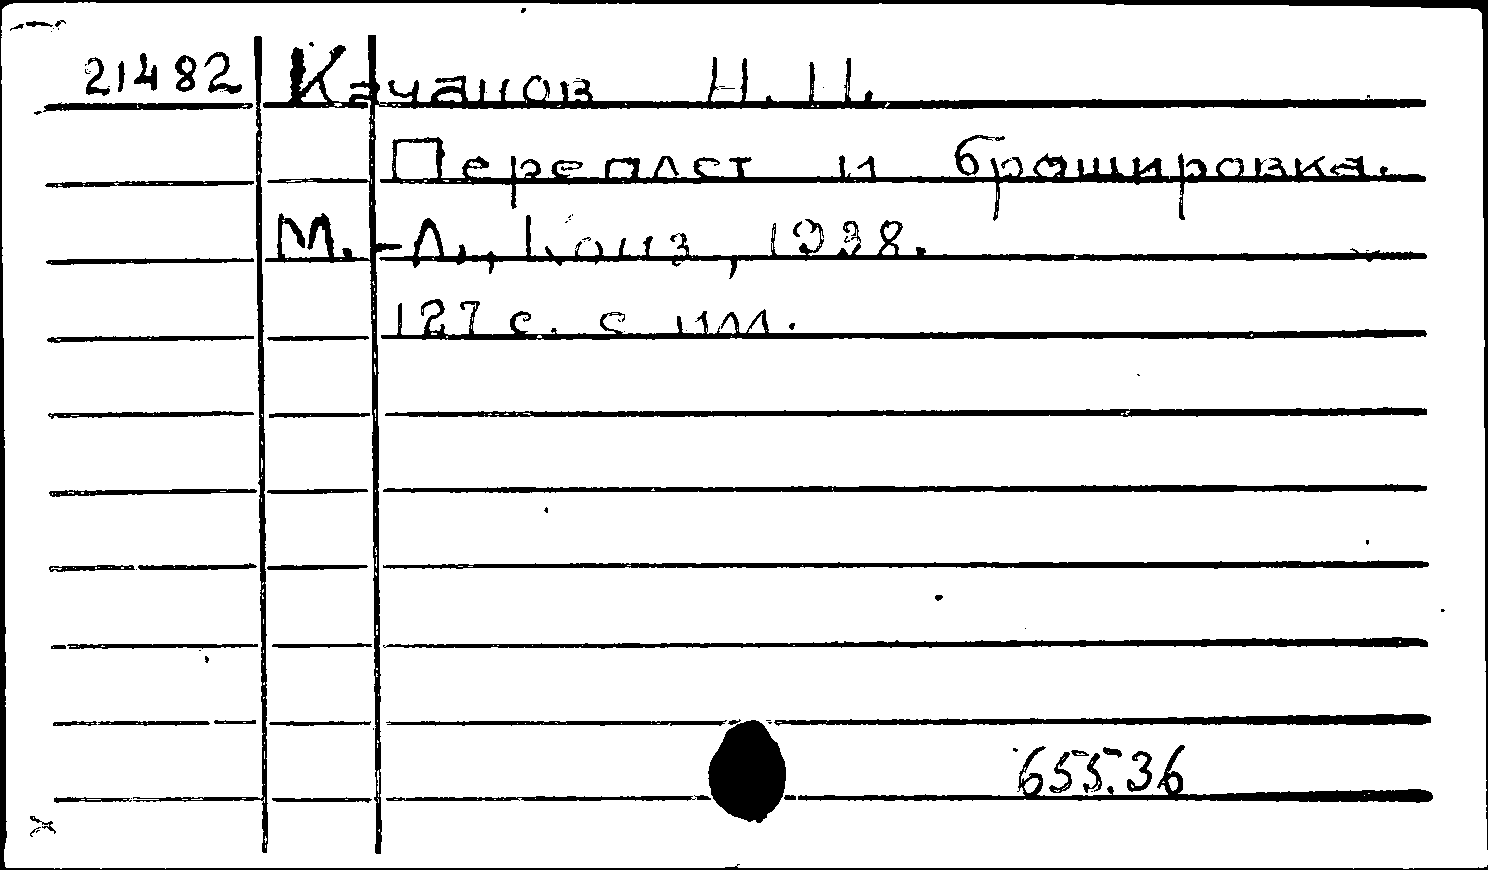 21482 Качанов Н. П.
Переплет и брошировка.
М.-Л., Коиз, 1938.
127 с. с илл.
655.36